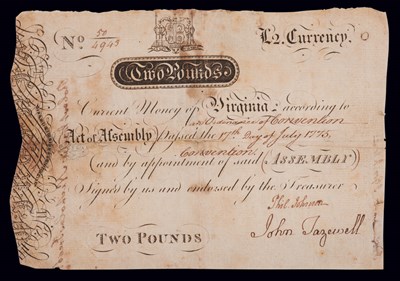 No. 50/4943
£2. Currency.
Two Pounds
Current Money of Virginia according to
an Ordinance of Convention
Act of Assembly Passed the 17th Day of July 1775.
Convention
(and by appointment of said (ASSEMBLY)
Signed by us and endorsed by the Treasurer
Phil. Johnson
TWO POUNDS
John Tazewell